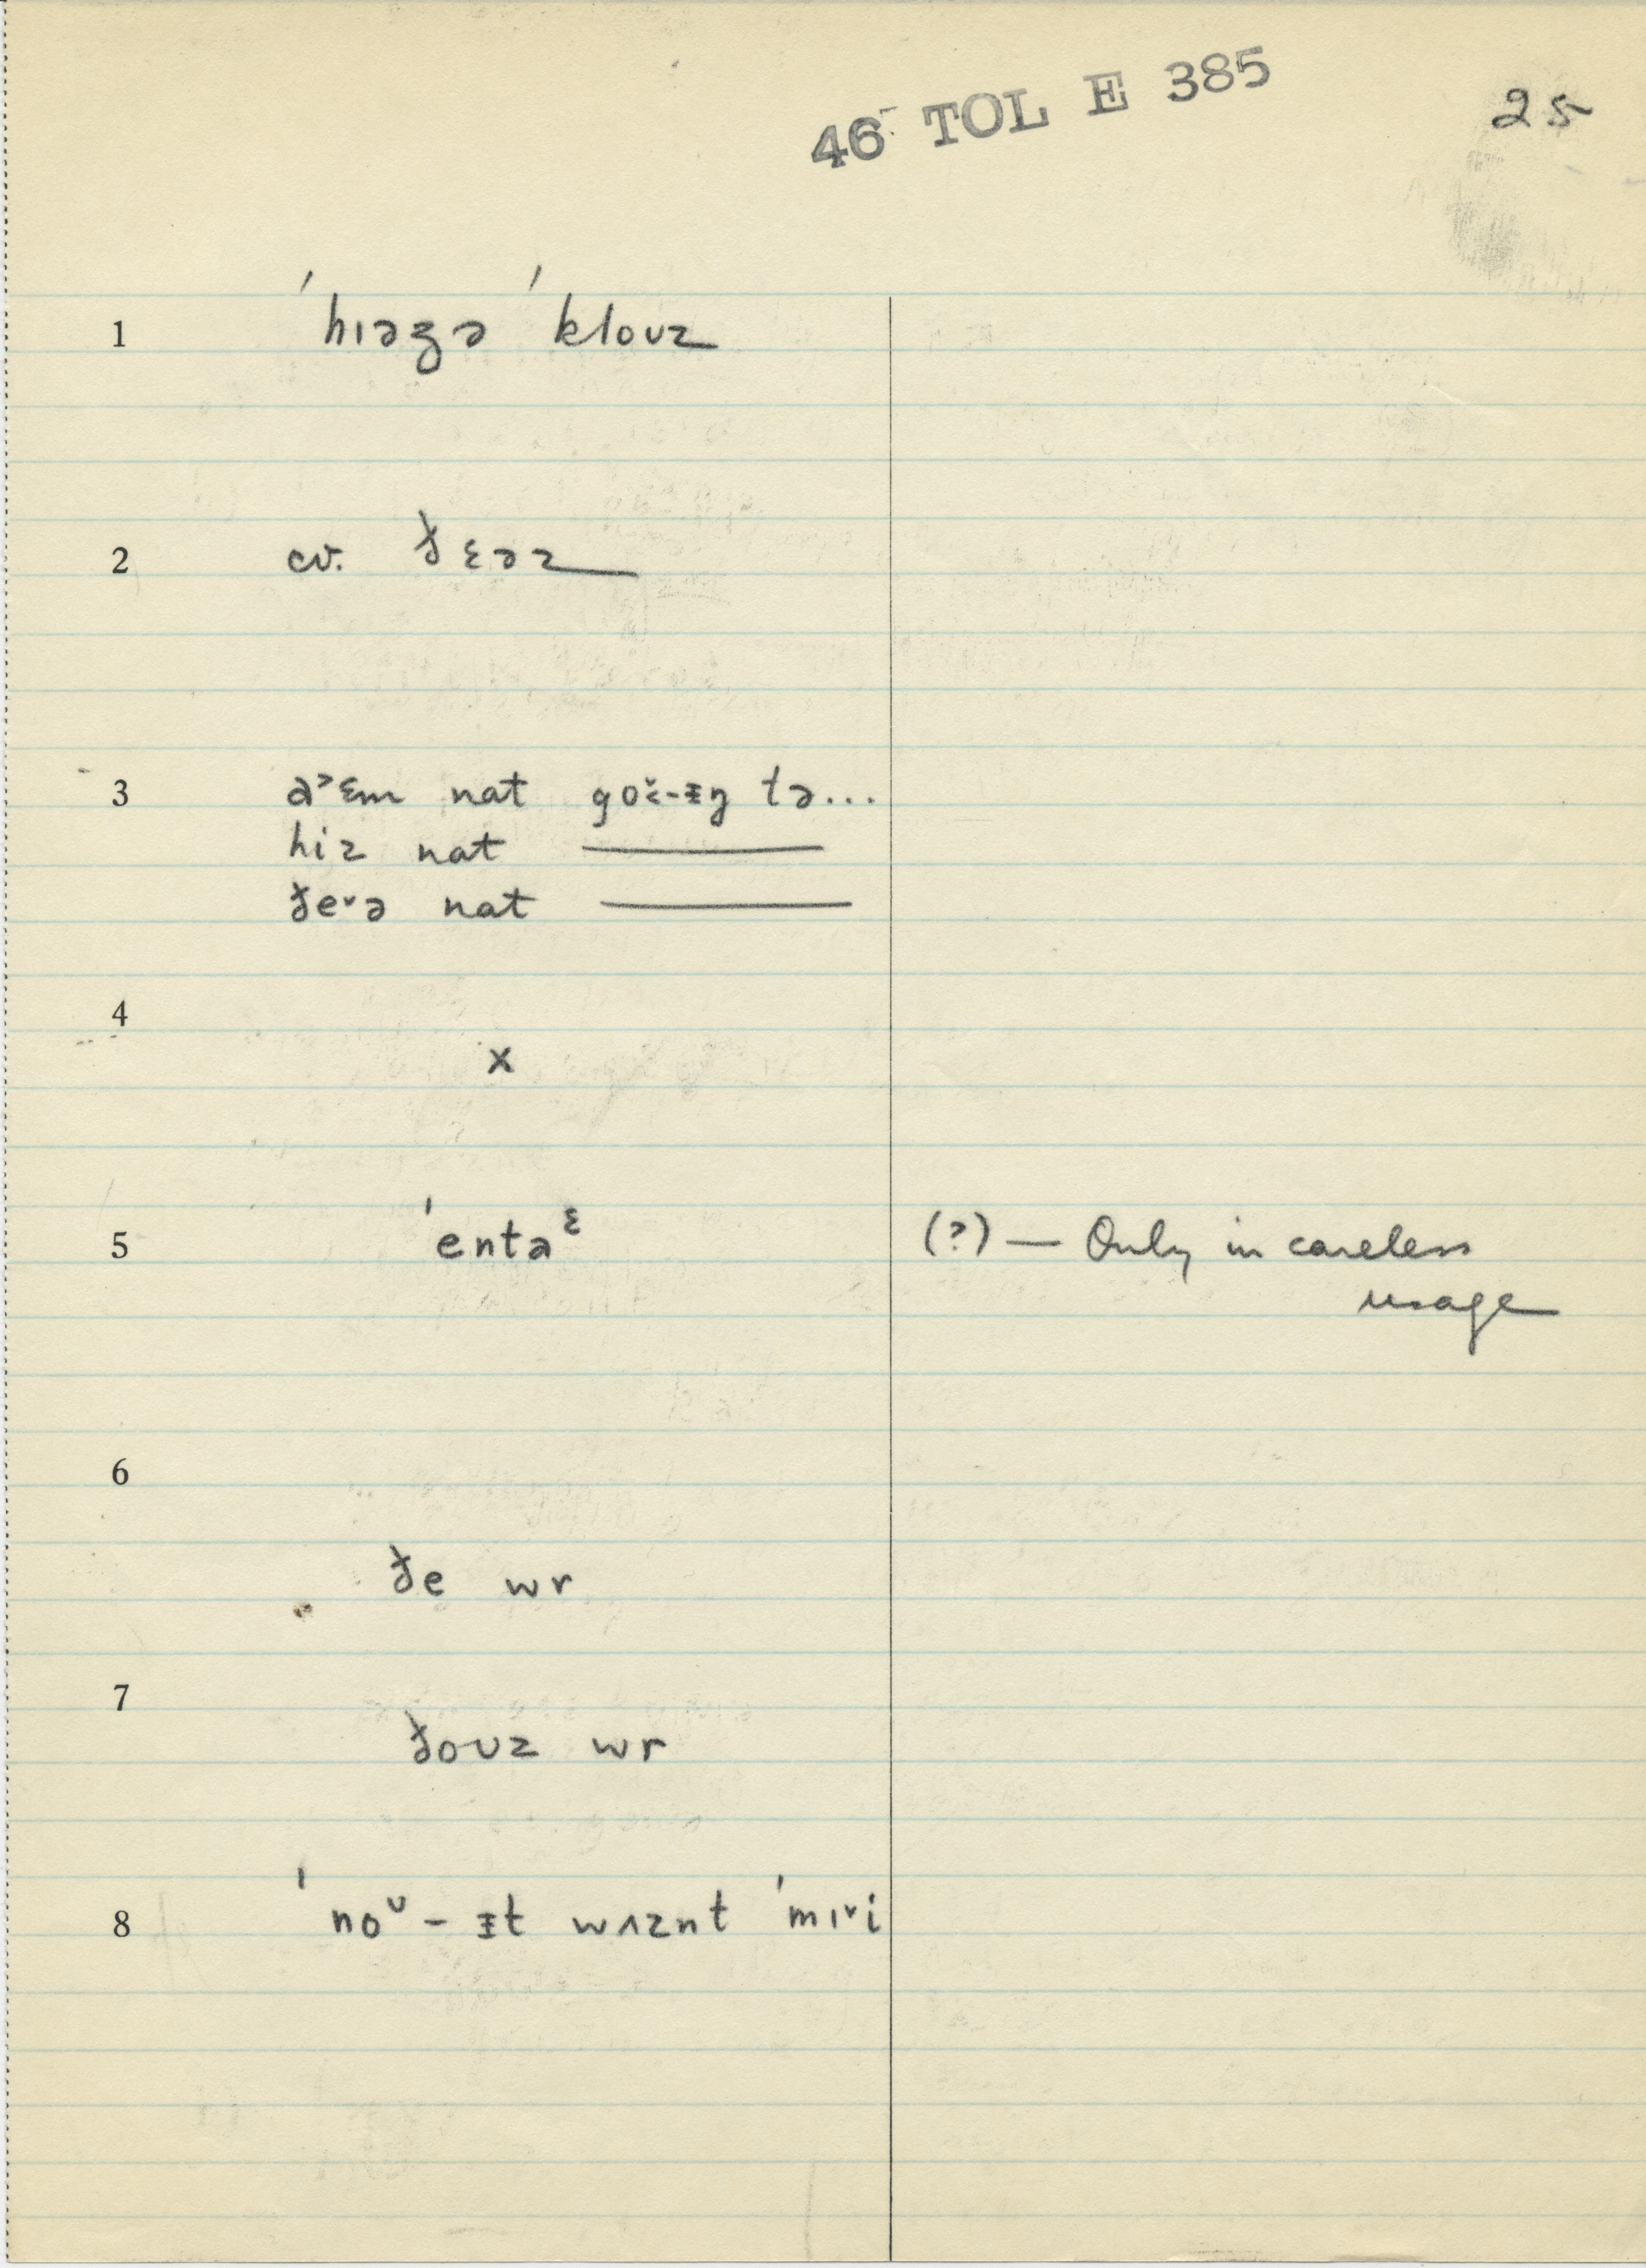 46 TOL E 385
25
1 ˈhɪəzə ˈkloʊz
2 cv. ðɛəz
3 a˃ɛm nat goʊ̌-ɪŋ tə...
hiz nat ———
ðe˅ə nat ———
4
x
5 ˈentaᵋ (?) — Only in careless
usage
6
ðe wr
7
ðoʊz wr
8 ˈnoᶷ-ɪt wʌznt ˈmɪ˅i